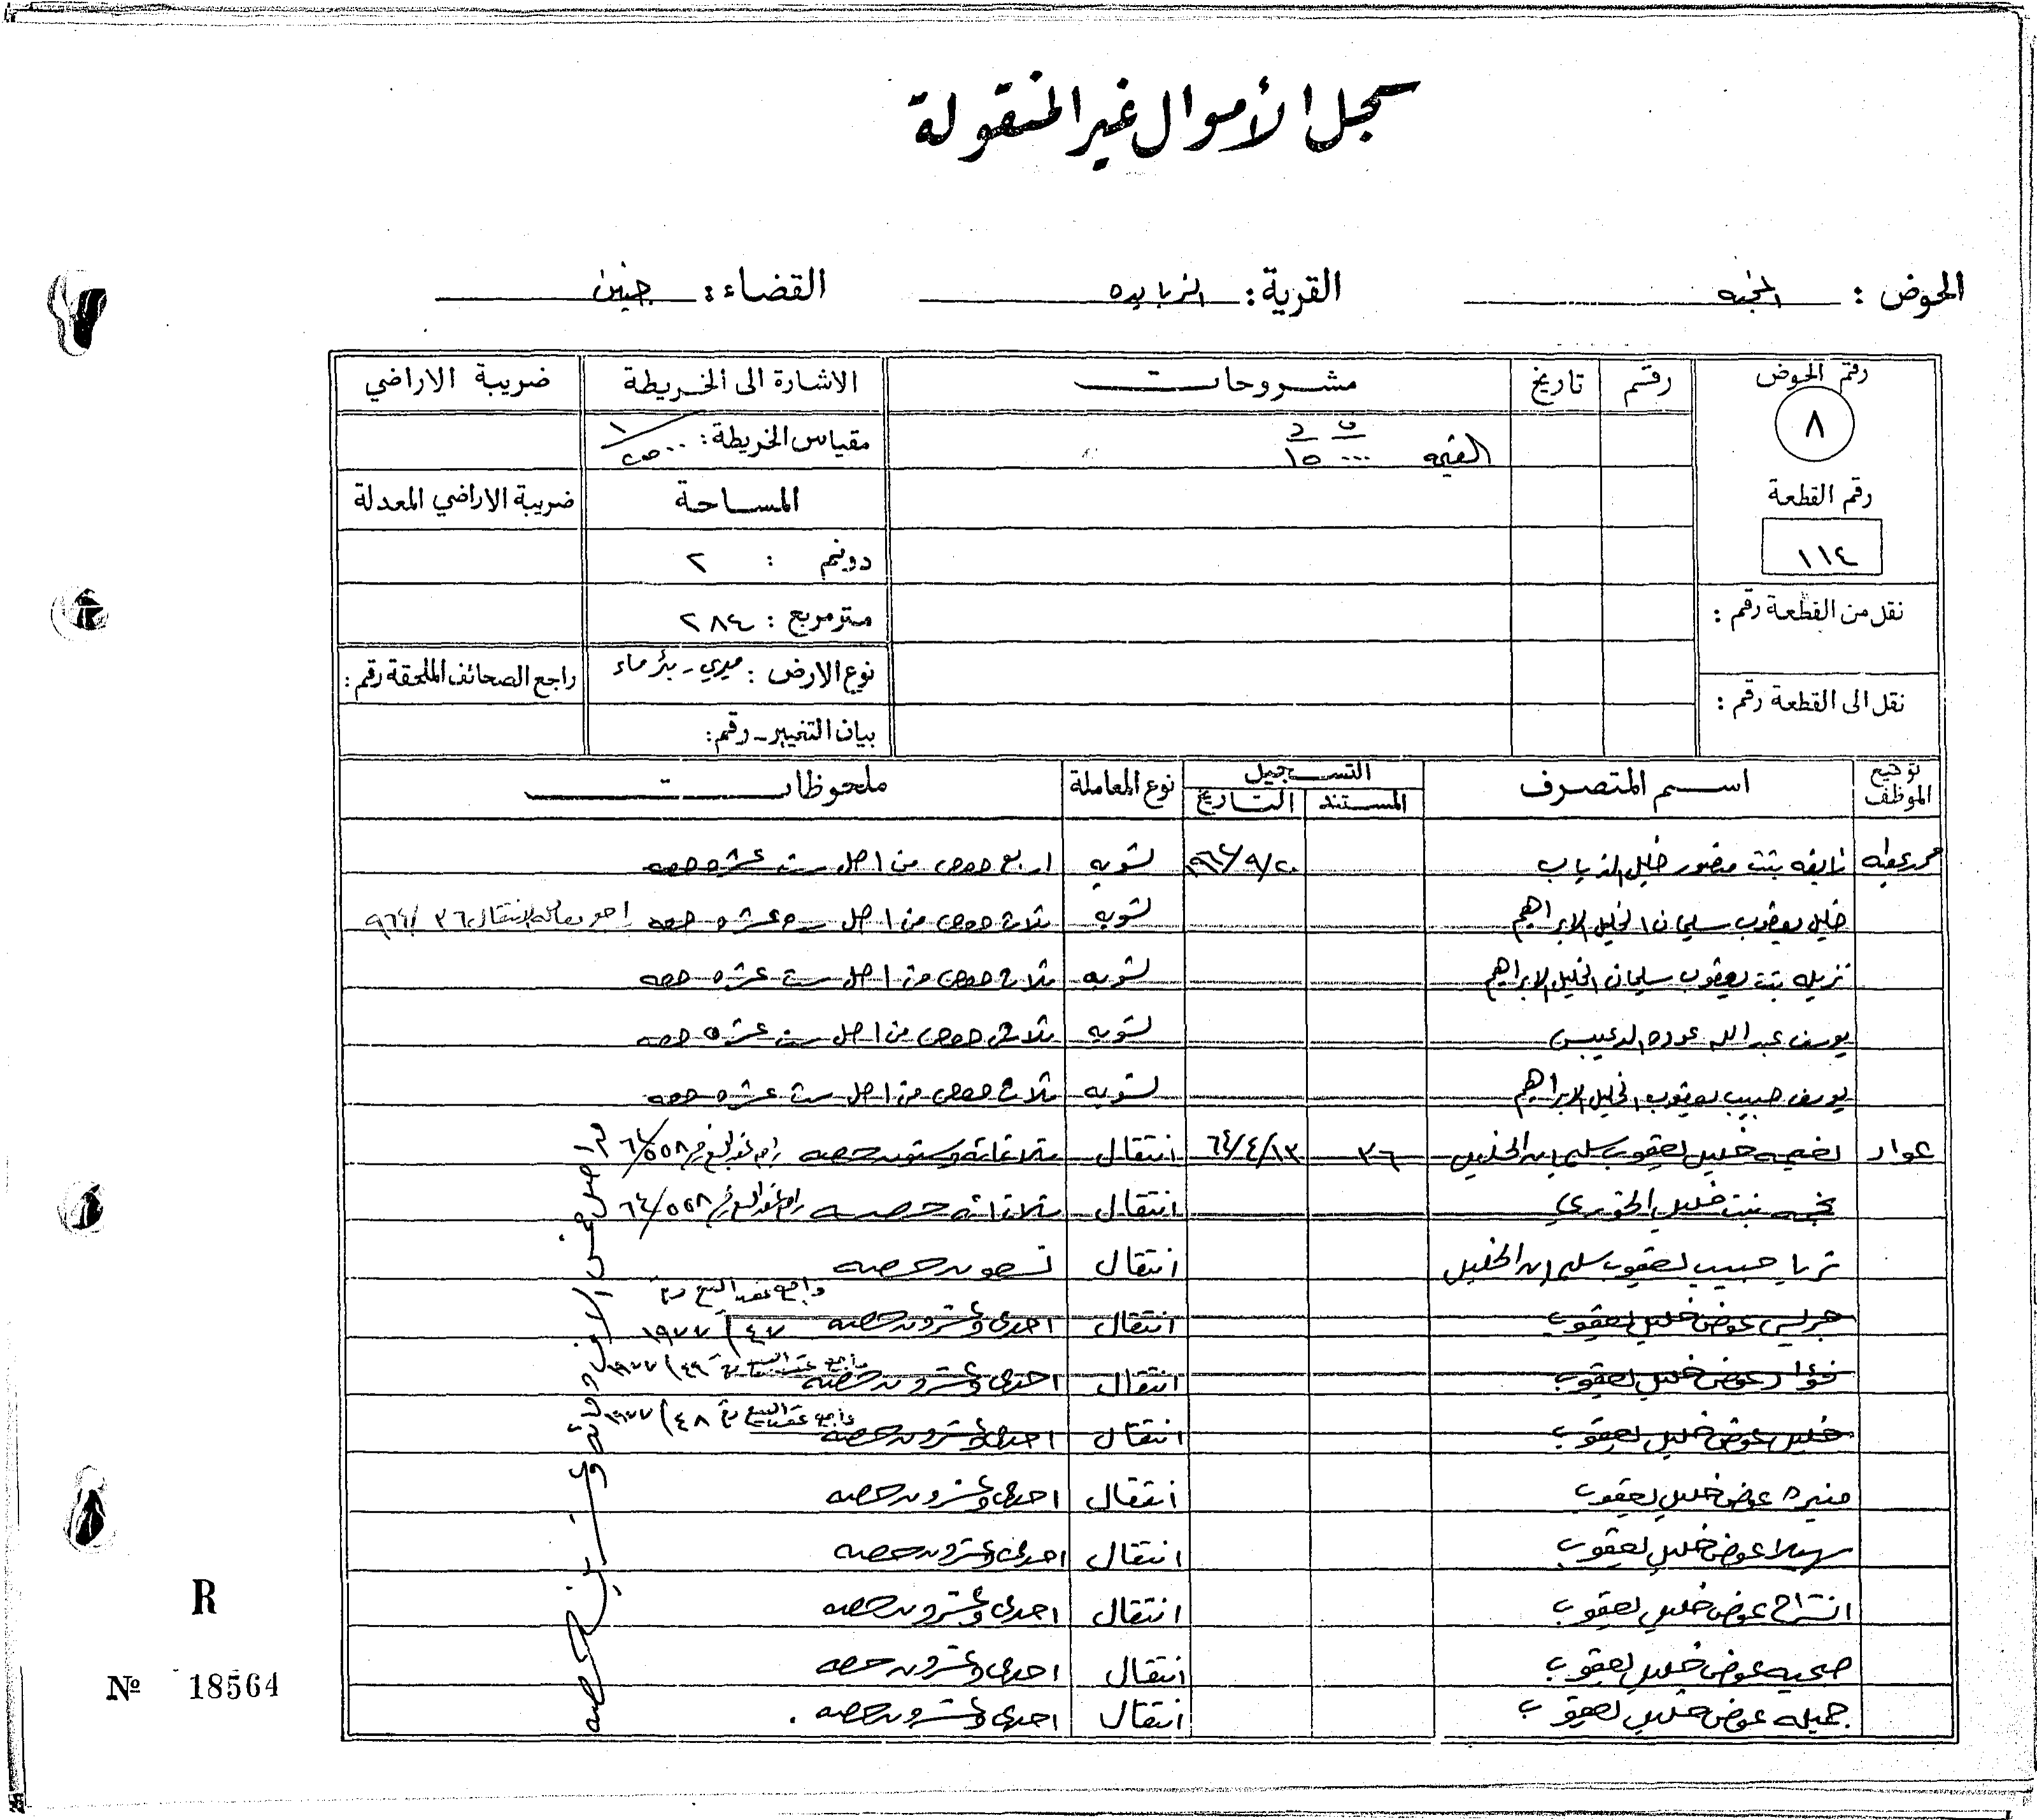 سجل الأموال غير المنقولة
الحوض : القرية : الزبابده القضاء : جنين
رقم الحوض رقم تاريخ مشروحات الاشارة الى الخريطة ضريبة الاراضي
٨ القيمه ١٥ مقياس الخريطة : ١/٢٥٠٠
رقم القطعة المساحة ضريبة الاراضي المعدلة
١١٤ دونم : ٢
نقل من القطعة رقم : متر مربع : ٢٨٤
نوع الارض : ميري - بئر ماء راجع الصحائف الملحقة رقم :
نقل الى القطعة رقم : بيان التغيير - رقم :
توقيع الموظف اسم المتصرف التسجيل المستند التاريخ نوع المعاملة ملحوظات
نايفه بنت منصور خليل الذياب ٩٦٢/٩/٢٠ تسويه اربع حصص من اصل ست عشره حصه
خليل يعقوب سليمان الخليل الابراهيم تسويه ثلاث حصص من اصل ست عشره حصه معاملة الانتقال ٣٦/٩٦٤
نزيله بنت يعقوب سليمان الخليل الابراهيم تسويه ثلاث حصص من اصل ست عشره حصه
يوسف عبدالله عوده الدعيبس تسويه ثلاث حصص من اصل ست عشره حصه
يوسف حبيب يعقوب الخليل الابراهيم تسويه ثلاث حصص من اصل ست عشره حصه
عواد نعيمه خليل يعقوب سليمان الخليل ٣٦ ٦٤/٤/١٣ انتقال ثلاثمائة وستون حصه ٦٤/٥٥٨
نجمه بنت خليل الخوري انتقال ثلاثمائة حصه ٦٤/٥٥٨
ثريا حبيب يعقوب سليمان الخليل انتقال تسعون حصه
جريس عوض خليل يعقوب انتقال احدى وعشرون حصه راجع عقد البيع رقم ٤٧/١٩٧٧
فؤاد عوض خليل يعقوب انتقال احدى وعشرون حصه راجع عقد البيع رقم ٤٩/١٩٧٧
خليل عوض خليل يعقوب انتقال احدى وعشرون حصه راجع عقد البيع رقم ٤٨/١٩٧٧
منيره عوض خليل يعقوب انتقال احدى وعشرون حصه
سهيلا عوض خليل يعقوب انتقال احدى وعشرون حصه
انشراح عوض خليل يعقوب انتقال احدى وعشرون حصه
صبحيه عوض خليل يعقوب انتقال احدى وعشرون حصه
جميله عوض خليل يعقوب انتقال احدى وعشرون حصه .
من اصل خمس الاف ومائة وعشرين حصه
R
№ 18564